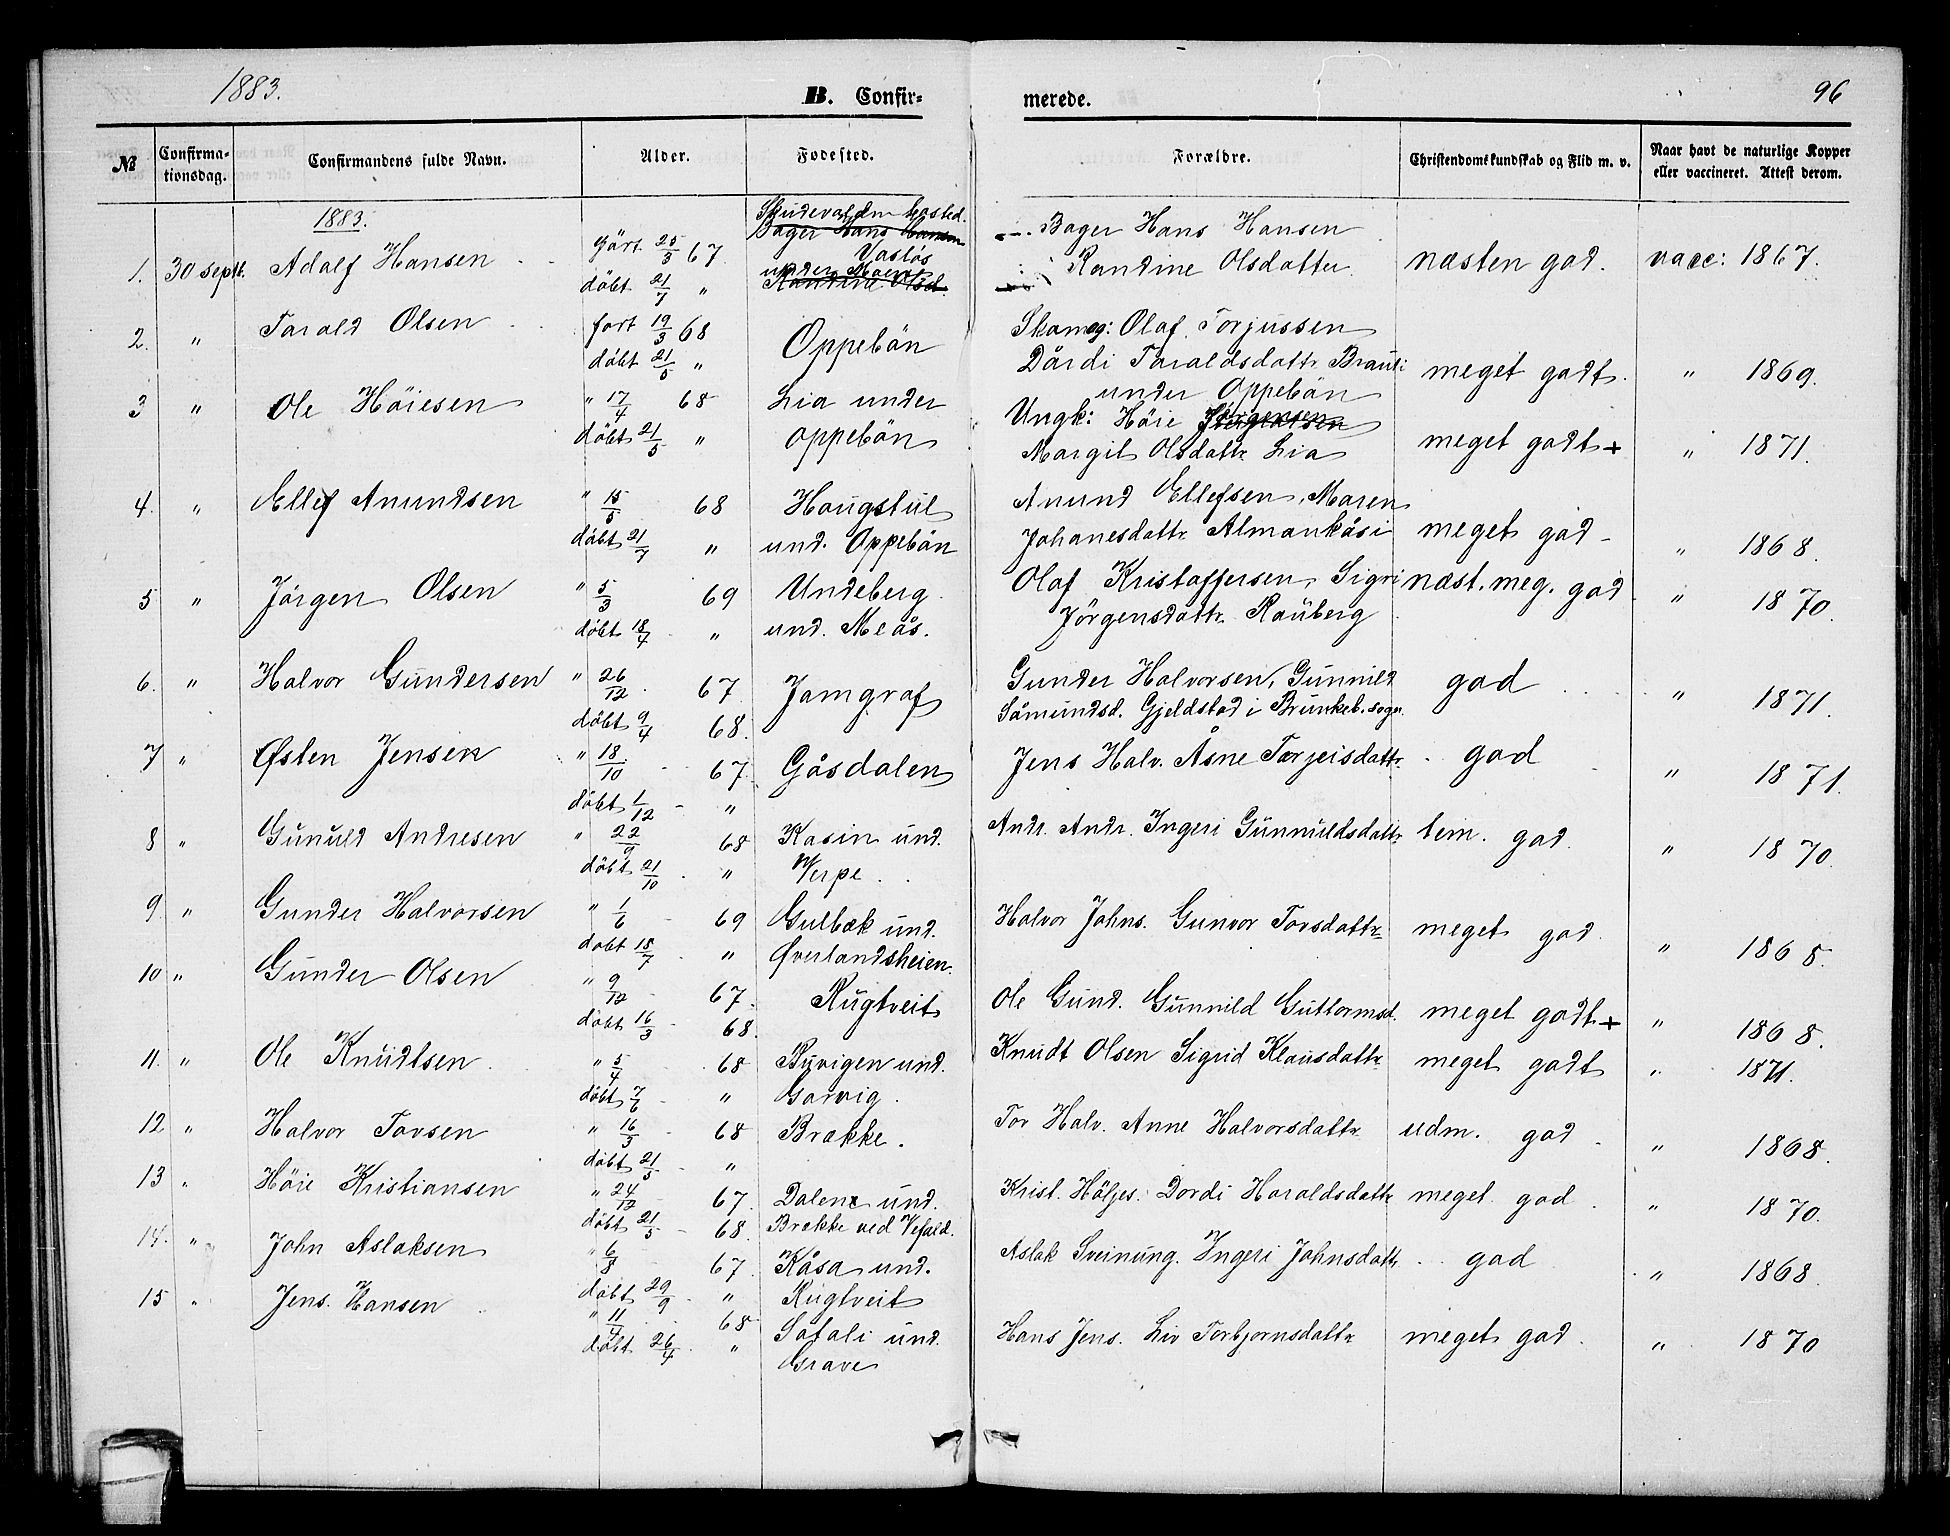 1883.
B. Confir-
merede.
96
№
Confirma-
tionsdag.
Confirmandens fulde Navn.
Alder.
Fødested.
Forældre.
Christendomskundskab og Flid m. v.
Naar havt de naturlige Kopper
eller vaccineret. Attest derom.
1883.
1. 30 septr. Adolf Hansen
født 25/3 67
døbt 21/7 "
Bager Hans Hansen
Randine Olsdatter
næsten god.
vacc: 1867.
2. " Tarald Olsen
født 19/3 68
døbt 21/5 "
Oppebøn
Skomag: Olaf Torjussen
Dårdi Taraldsdattr Brauti
under Oppebøn
meget godt.
" 1869.
3 " Ole Høiesen
" 17/4 68
døbt 21/5 "
Lia under
oppebøn
Ungk: Høie Jørgensen
Margit Olsdattr Lia
meget godt +
" 1871.
4. " Ellef Anundsen
" 15/5 68
døbt 21/7 "
Haugstul
und. Oppebøn
Anund Ellefsen, Maren
Johanesdattr Almankåsi
meget god
" 1868.
5 " Jørgen Olsen
" 5/3 69
døbt 18/4 "
Undeberg
und. Meås.
Olaf Kristoffersen, Sigri
Jörgensdattr Rauberg
næst. meg. god
" 1870.
6. " Halvor Gundersen
" 26/12 67
døbt 9/4 68.
Jamgraf
Gunder Halvorsen, Gunnild
Såmundsd. Gjeldstad i Brunkeb. sogn
god
" 1871.
7 " Østen Jensen
" 18/10 67.
døbt 1/12 "
Gåsdalen
Jens Halv. Åsne Torjeisdattr.
god
" 1871.
8 " Gunuld Andresen
" 22/9 68
døbt 21/10 "
Kasin und.
Verpe.
Andr. Andr. Ingeri Gunnuldsdattr
tem. god
" 1870.
9 " Gunder Halvorsen
" 1/6 69
døbt 18/7 "
Gulbæk und.
Øverlandsheien.
Halvor Johns. Gunvor Torsdattr
meget god
" 1868.
10 " Gunder Olsen
" 9/12 67.
døbt 16/3 68.
Rugtveit
Ole Gund. Gunnild Guttormsd.
meget godt +
" 1868.
11. " Ole Knudtsen
" 5/4 68
døbt 7/6 "
Buvigen und.
Garvig.
Knudt Olsen Sigrid Klausdattr
meget godt
" 1871.
12. " Halvor Torsen
" 16/3 68
døbt 21/5 "
Brække.
Tor Halv. Anne Halvorsdattr
udm. god
" 1868.
13 " Høie Kristiansen
" 24/12 67.
døbt 21/5 68.
Dalene und.
Brække ved Vefald.
Krist. Høljes. Dordi Haraldsdattr
meget god
" 1870.
14. " John Aslaksen
" 6/8 67.
døbt 29/9 "
Kåsa und.
Rugtveit
Aslak Sveinung. Ingeri Johnsdattr
god
" 1868.
15 " Jens. Hansen
" 11/4 68
døbt 26/4 "
Såtali und.
Grave
Hans Jens. Liv Torbjørnsdattr
meget god.
" 1870